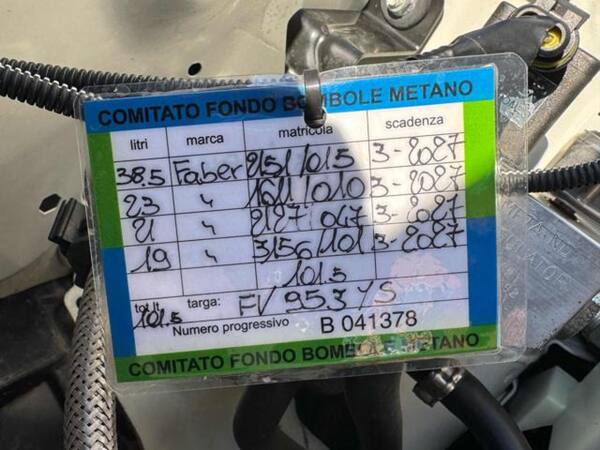 COMITATO FONDO BOMBOLE METANO
litri marca matricola scadenza
38.5 Faber 2151/015 3-2027
23 " 1611/010 3-2027
21 " 2127/047 3-2027
19 " 3156/101 3-2027
101.5
tot.lt. 101.5 targa: FV 953 YS
Numero progressivo B 041378
COMITATO FONDO BOMBOLE METANO